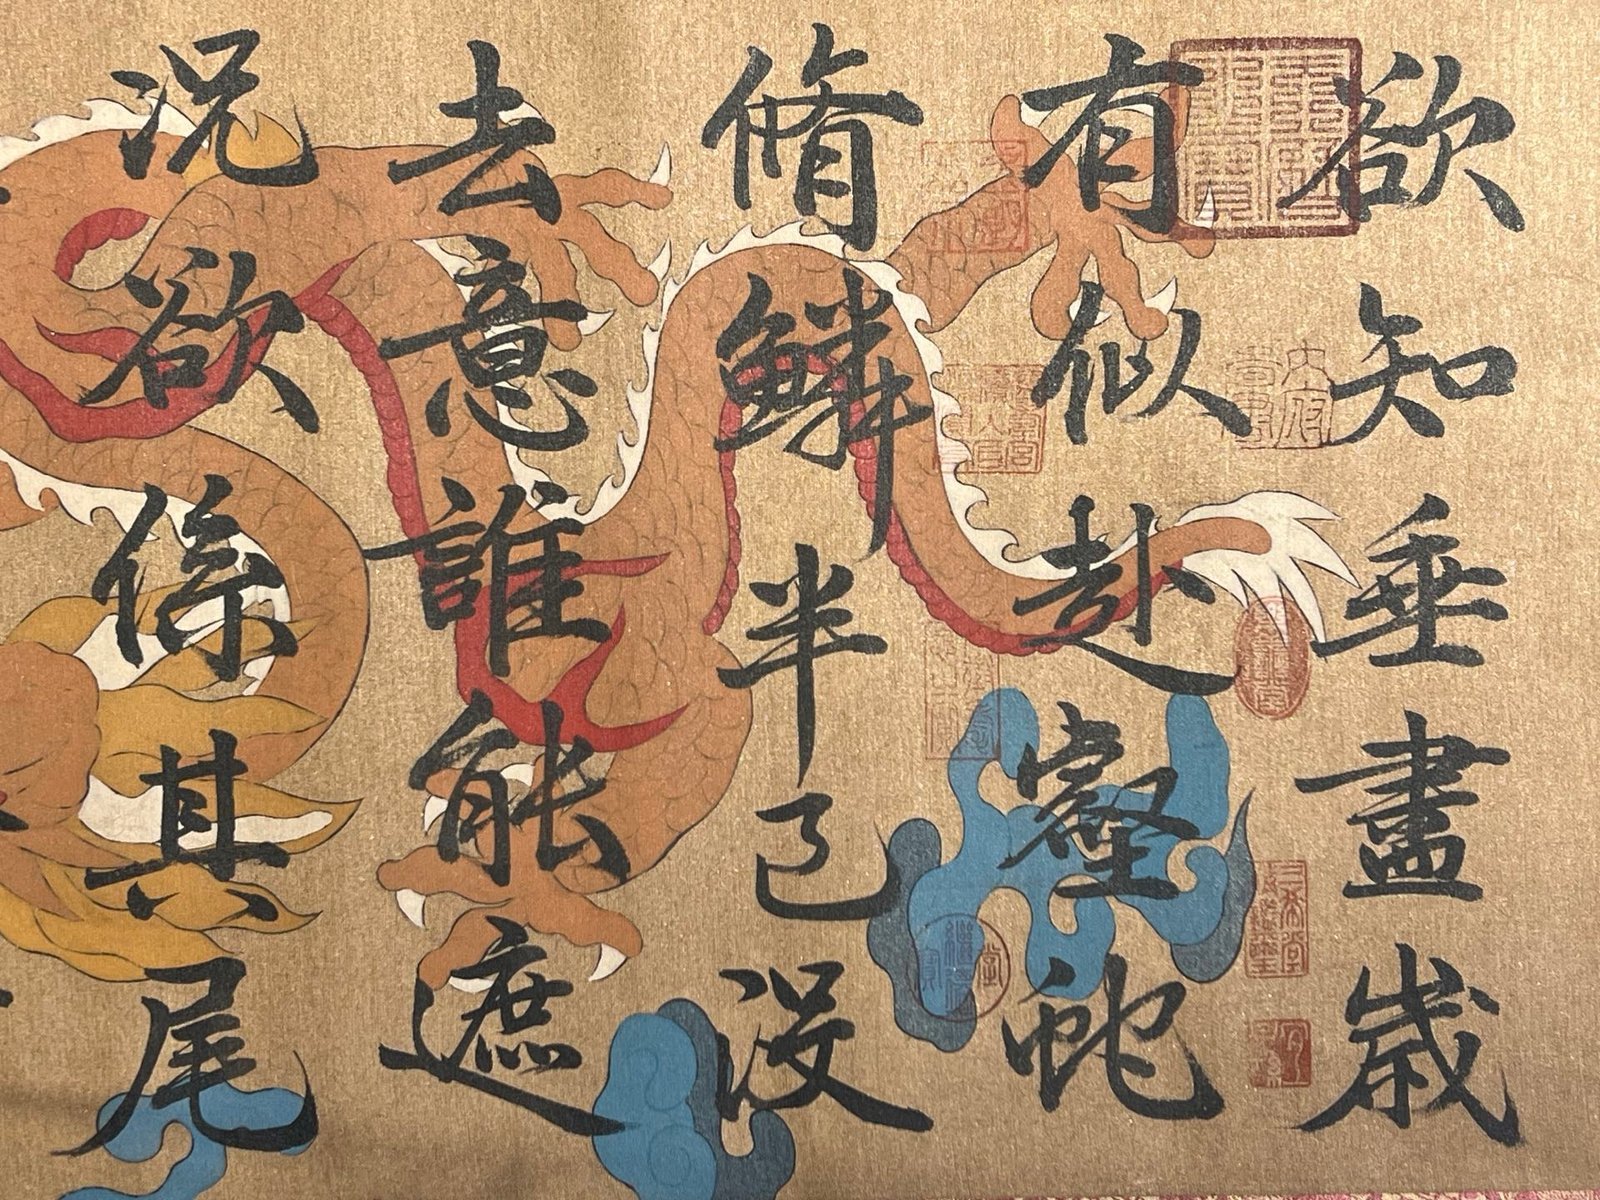 欲知垂盡歲
有似赴壑虵
脩鱗半已沒
去意誰能遮
況欲係其尾